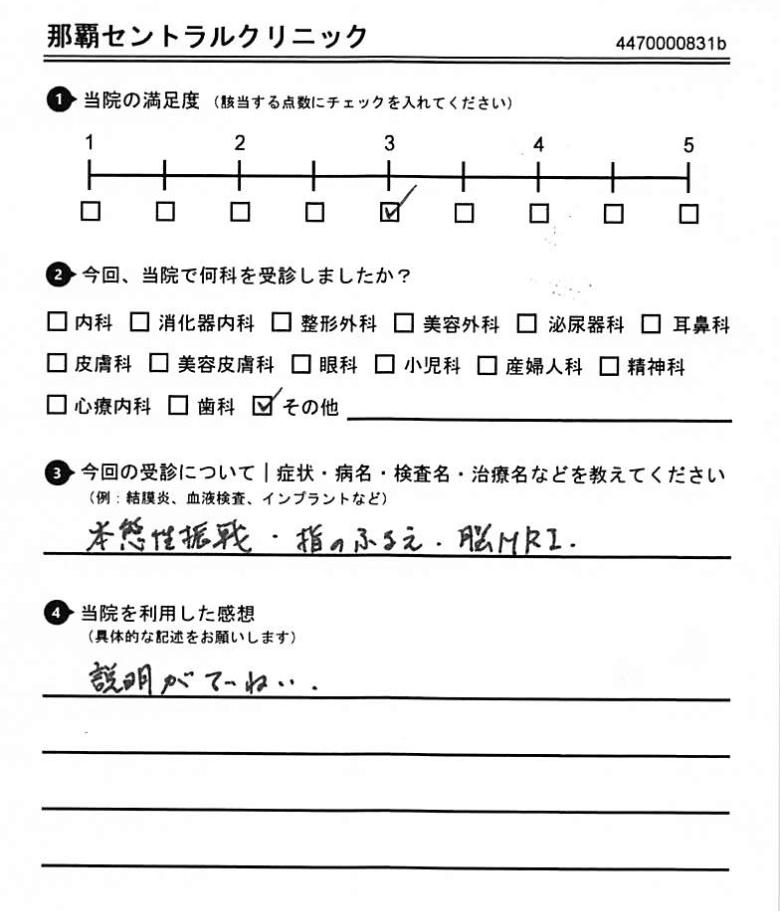 那覇セントラルクリニック 4470000831b
❶ 当院の満足度 (該当する点数にチェックを入れてください)
1 2 3 4 5
□ □ □ □ ☑ □ □ □ □
❷ 今回、当院で何科を受診しましたか？
□ 内科 □ 消化器内科 □ 整形外科 □ 美容外科 □ 泌尿器科 □ 耳鼻科
□ 皮膚科 □ 美容皮膚科 □ 眼科 □ 小児科 □ 産婦人科 □ 精神科
□ 心療内科 □ 歯科 ☑ その他
❸ 今回の受診について｜症状・病名・検査名・治療名などを教えてください
(例：結膜炎、血液検査、インプラントなど)
本態性振戦・指のふるえ．脳MRI．
❹ 当院を利用した感想
(具体的な記述をお願いします)
説明がてーねい．